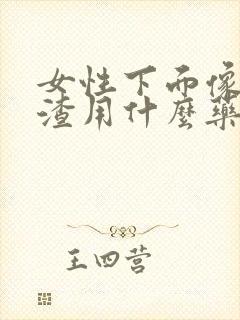 女性下面像
渣用什麼藥
王四营